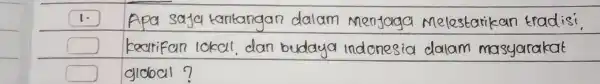 1. Apa saja tantangan dalam menjaga melestarikan tradisi,
kearifan lokal, dan budaya Indonesia dalam masyarakat
global ?